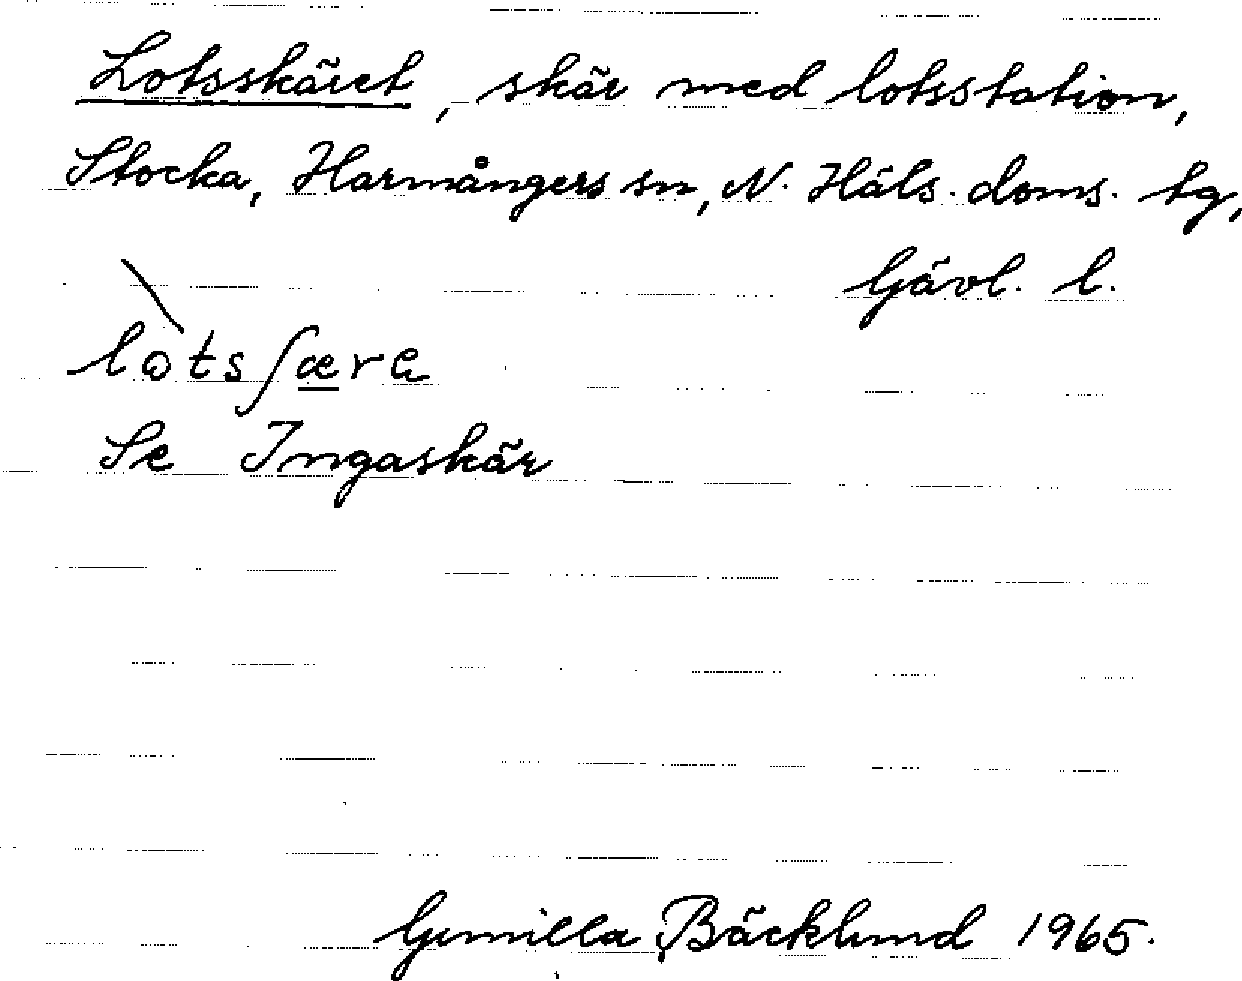 Lotsskäret, skär med lotsstation,
Stocka, Harmångers sn, N. Häls. doms. tg,
Gävl. l.
lòtsʃæra
Se Ingaskär
Gunilla Bäcklund 1965.